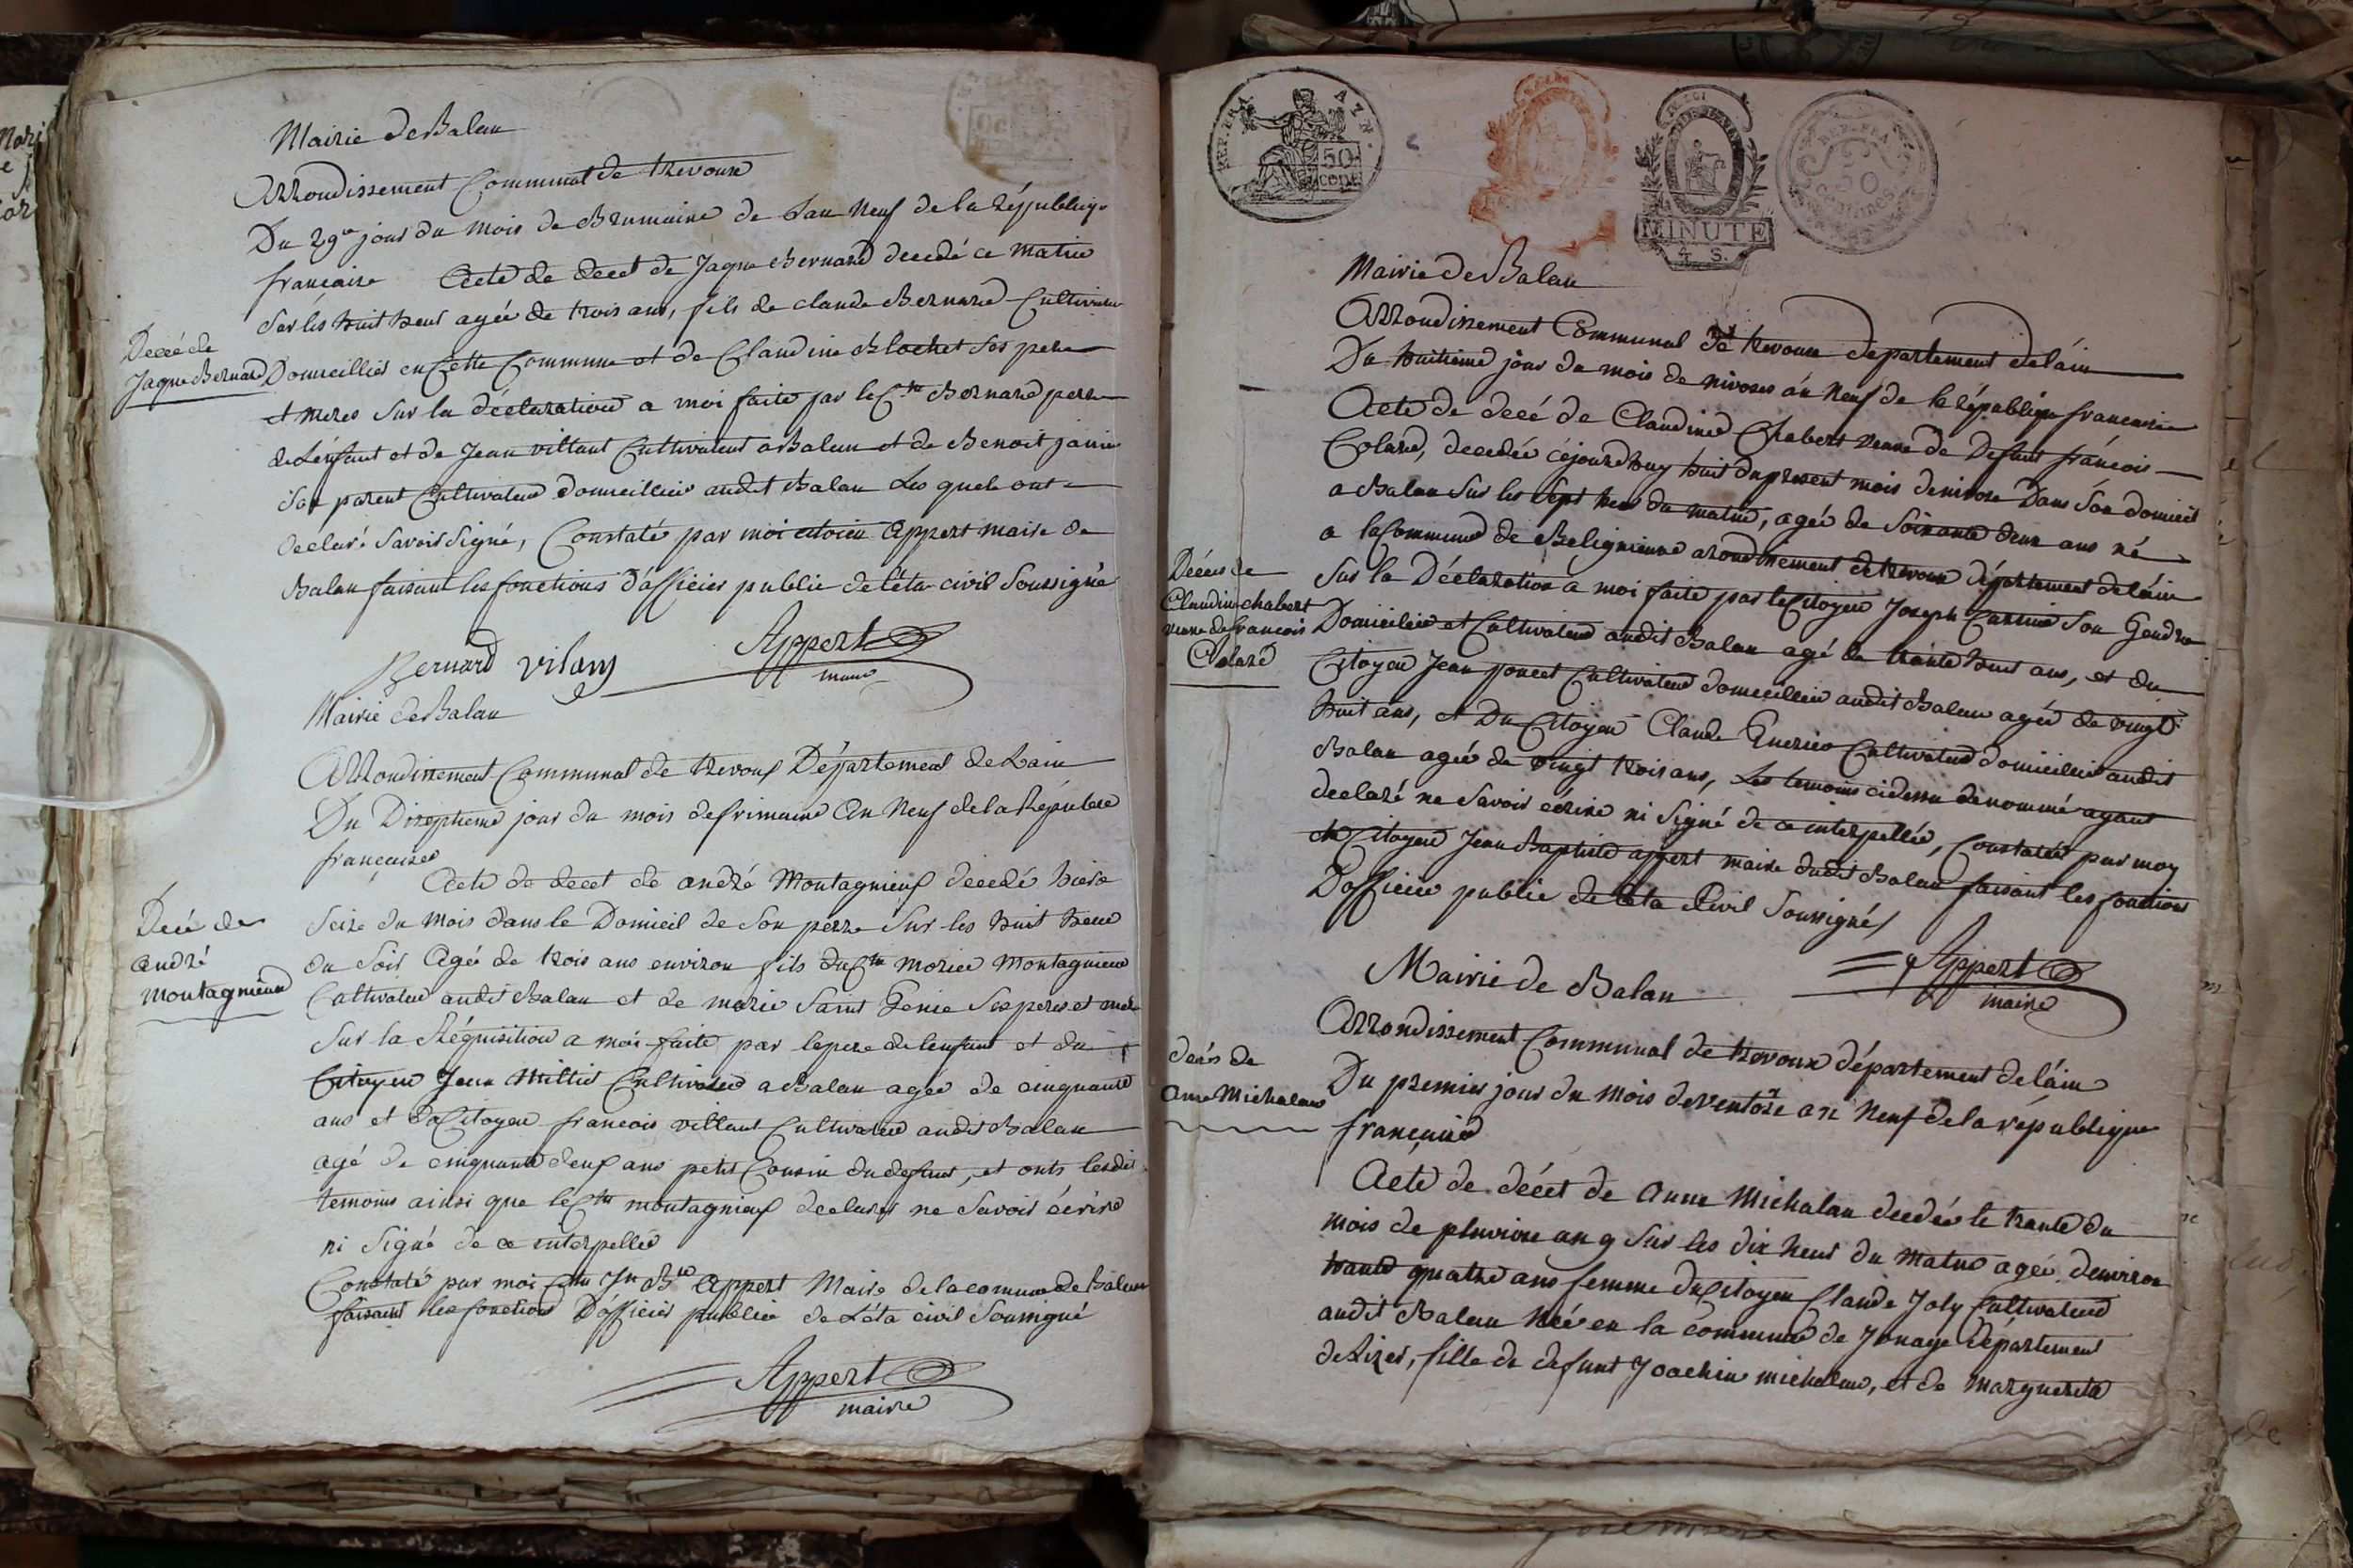 Mairie de Balan
Arrondissement Communal de trevoux
Du 29me jour du mois de Brumaire de Lan Neuf de la République
française Acte de decet de Jaque Bernard decedé ce matin
Sur les huit heur agée de trois ans, fils de claude Bernard Cultivateur
Domicillier en Cette Commune et de Claudine Blochet Ses pere
et meres Sur la déclaration a moi faite par le Cen Bernard perre
de Lenfant et de Jean villant Cultivateur a Balan et de Benoit janin
Son parent Cultivateur domicillier audit Balan Les quels ont
declaré Savoir Signé, Constaté par moi citoien Appert maire de
Balan faisant les fonctions d'officier public de l'éta civil Soussigné
Decé de
Jaque Bernard
Bernard vilany Appert
maire
Mairie de Balan
Arrondissement Communal de trevoux Département de Lain
Du Diseptieme jour du mois de frimaire An Neuf de la Républice
française
Acte de decet de andré Montagnieux decedé hiere
Seize du mois dans le Domicil de Son perre Sur les huit heure
du Soir Agée de trois ans environ fils du Cen Morice Montagnieux
Cultivateur audit Balan et de marie Saint Genie Ses peres et mere
Sur la Réquisition a moi faite par le pere de lenfant et du
Citoyen Jean Millier Cultivateur a Balan agée de cinquante
ans et du Citoyen francois villant Cultivateur audit Balan
agé de cinquante deux ans petit Cousin du defunt, et onts lesdit
temoins ainsi que le Cen montagnieux declares ne Savoir écrire
ni Signé de ce interpellée
Constaté par moi Cen Jn Bte Appert Maire de la commune de Balan
faisant les fonctions D'officier publice de L'éta civil Soussigné
Decé de
andré
Montagnieux
Appert
maire
REP. FRA
50
CENT
MINUTE
REP. FRA
50
Centimes
Mairie de Balan
Arrondissement Communal de trevoux departement de láin
Du huitieme jour du mois de nivoses an Neuf de la République francaise
Acte de decé de Claudine Chabert veuve de Defunt françois
Colard, decedée cejourdhuy huit du present mois de nivose Dans Son domicil
a Balan Sur les Sept heur du matin, agée de Soixante deux ans né
a la Commune de Beligneux arondissement de trevoux département de láin
Sur la Déclaration a moi faite par le Citoyen Joseph Son Gendre
Domicilier et Cultivateur audit Balan agé de trante huit ans, et du
Citoyen Jean poncet Cultivateur domicillier audit Balan agée de vingt
huit ans, et Du Citoyen Claude Cultivateur domicilier audit
Balan agée de vingt trois ans, Les temoins cidessu denommé ayant
declaré ne Savoir écrire ni Signé de ce interpellée, Constatée par moy
Citoyen Jean Baptiste appert maire dudit Balan faisant les fonctions
D'officier public de l'éta Civil Soussigné
Décés de
Claudine chabert
veuve de francois
Colard
Appert
maire
Mairie de Balan
Arrondissement Communal de trevoux département de láin
Du premier jour du mois de ventose an Neuf de la république
française
Acte de décét de anne Michalan decédée le trante du
mois de pluviose an 9 Sur les dix heur du matin agée denviron
trante quatre ans femme du Citoyen Claude Joly Cultivateur
audit Balan Née en la commune de Jonage Département
de Lizer, fille de defunt Joachin michalan, et de Marguerite
décés de
anne Michalan